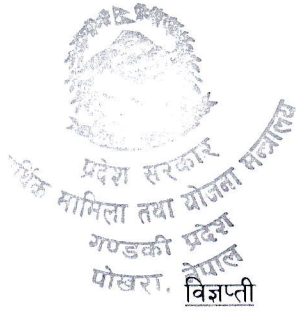 प्रदेश सरकार
र्थिक मामिला तथा योजना मन्त्रालय
गण्डकी प्रदेश
पोखरा, नेपाल
विज्ञप्ती